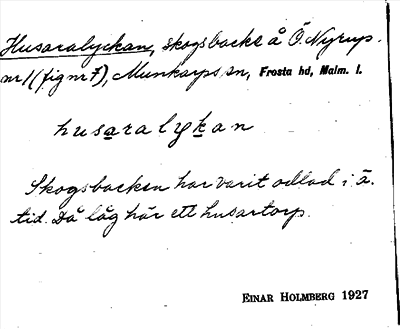 Husaralyckan, skogsbacke å Ö. Nyrup.
nr 1 (fig nr 7), Munkarps sn, Frosta hd, Malm. l.
husaralykan
Skogsbacken har varit odlad i ä.
tid. Då låg här ett husartorp.
EINAR HOLMBERG 1927